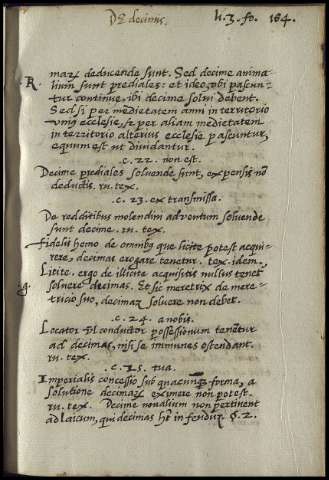 DE decimis. li. 3. fo. 184.
marum deducende sunt. Sed decime anima-
R. lium sunt prediales: et ideo, ubi pascun-
tur continue, ibi decime solui debent.
Sed si per medietatem anni in territorio
unius ecclesie, et per aliam medietatem
in territorio alterius ecclesie pascuntur,
equum est ut diuidantur.
c. 22. non est.
Decime prediales soluende sunt, expensis nō
deductis. in. tex.
c. 23. ex transmissa.
De redditibus molendini ad ventum soluende
sunt decime. in. tex.
Fidelis homo de omnibus que licite potest acqui-
rere, decimas erogare tenetur. tex. idem.
Licite. ergo de illicite acquisitis nullus tenet'
g. soluere decimas. Et sic meretrix de mere-
tricio suo, decimas soluere non debet.
c. 24. a nobis.
Locator vel conductor possessionum tenētur
ad decimas, nisi se immunes ostendant.
in. tex.
c. 25. tua.
Imperialis concessio sub quacunque forma, a
solutione decimarum eximere non potest.
in. tex. Decime noualium non pertinent
ad laicum, qui decimas ht in feudum. §. 2.